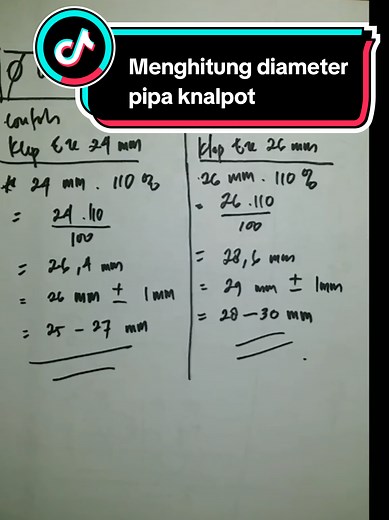 Menghitung diameter
pipa knalpot
Ø
Contoh
Klep Ex 24 mm
* 24 mm . 110 %
= 24 . 110
100
= 26,4 mm
= 26 mm ± 1 mm
= 25 - 27 mm
Klep Ex 26 mm
26 mm . 110 %
= 26 . 110
100
= 28,6 mm
= 29 mm ± 1mm
= 28 - 30 mm